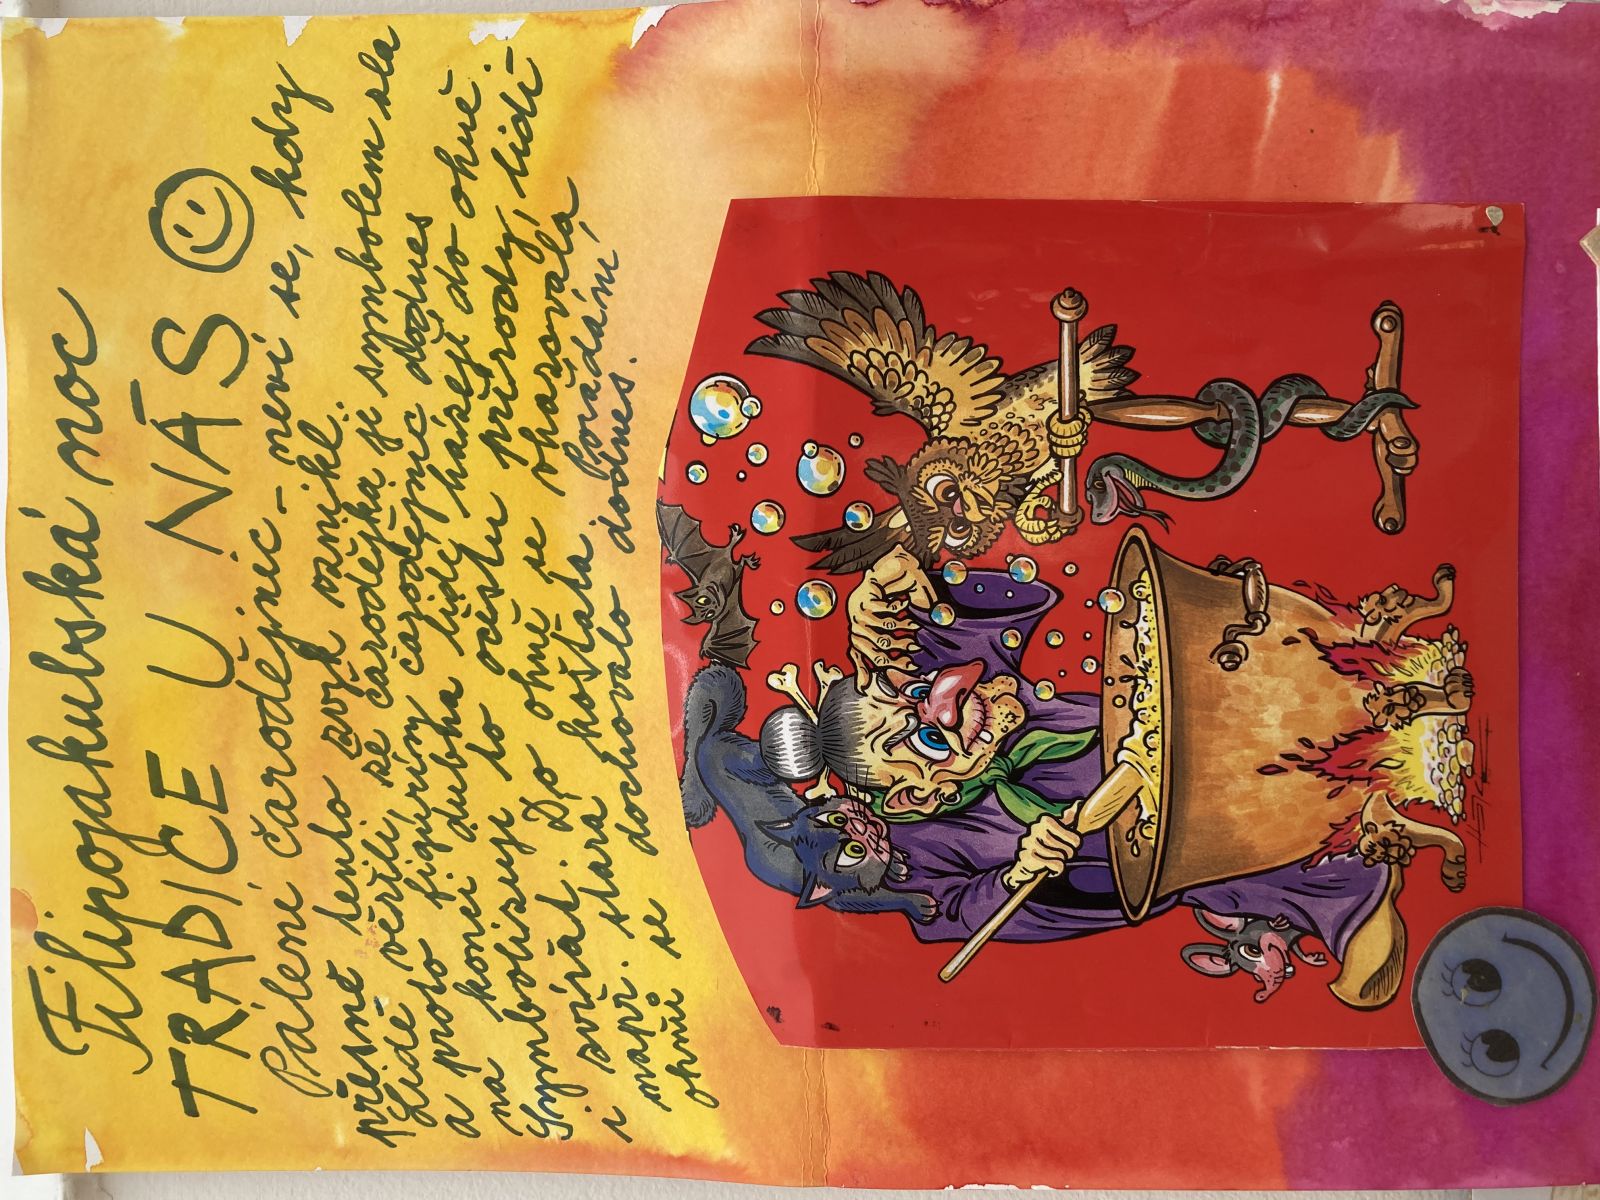 Filipojakubská noc
TRADICE U NÁS
Pálení čarodějnic - neví se, kdy
přesně tento zvyk vznikl.
Lidé věřili, že čarodějka je symbolem zla
a proto figuríny čarodějnic dodnes
na konci dubna lidé házejí do ohně.
Symbolizuje to očistu přírody, lidí
i zvířat. Do ohně se vhazovala
např. stará košťata. Pořádání
ohňů se dochovalo dodnes.